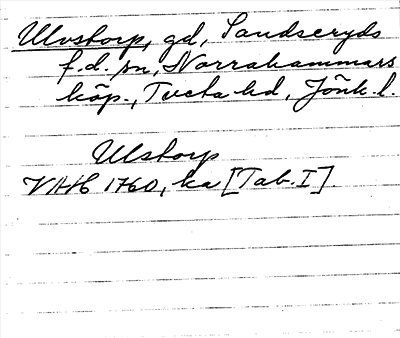 Ulvstorp, gd, Sandseryds
f.d. sn, Norrahammars
köp., Tveta hd, Jönk. l.
Ulstorp
VAH 1760, ka [Tab. I].